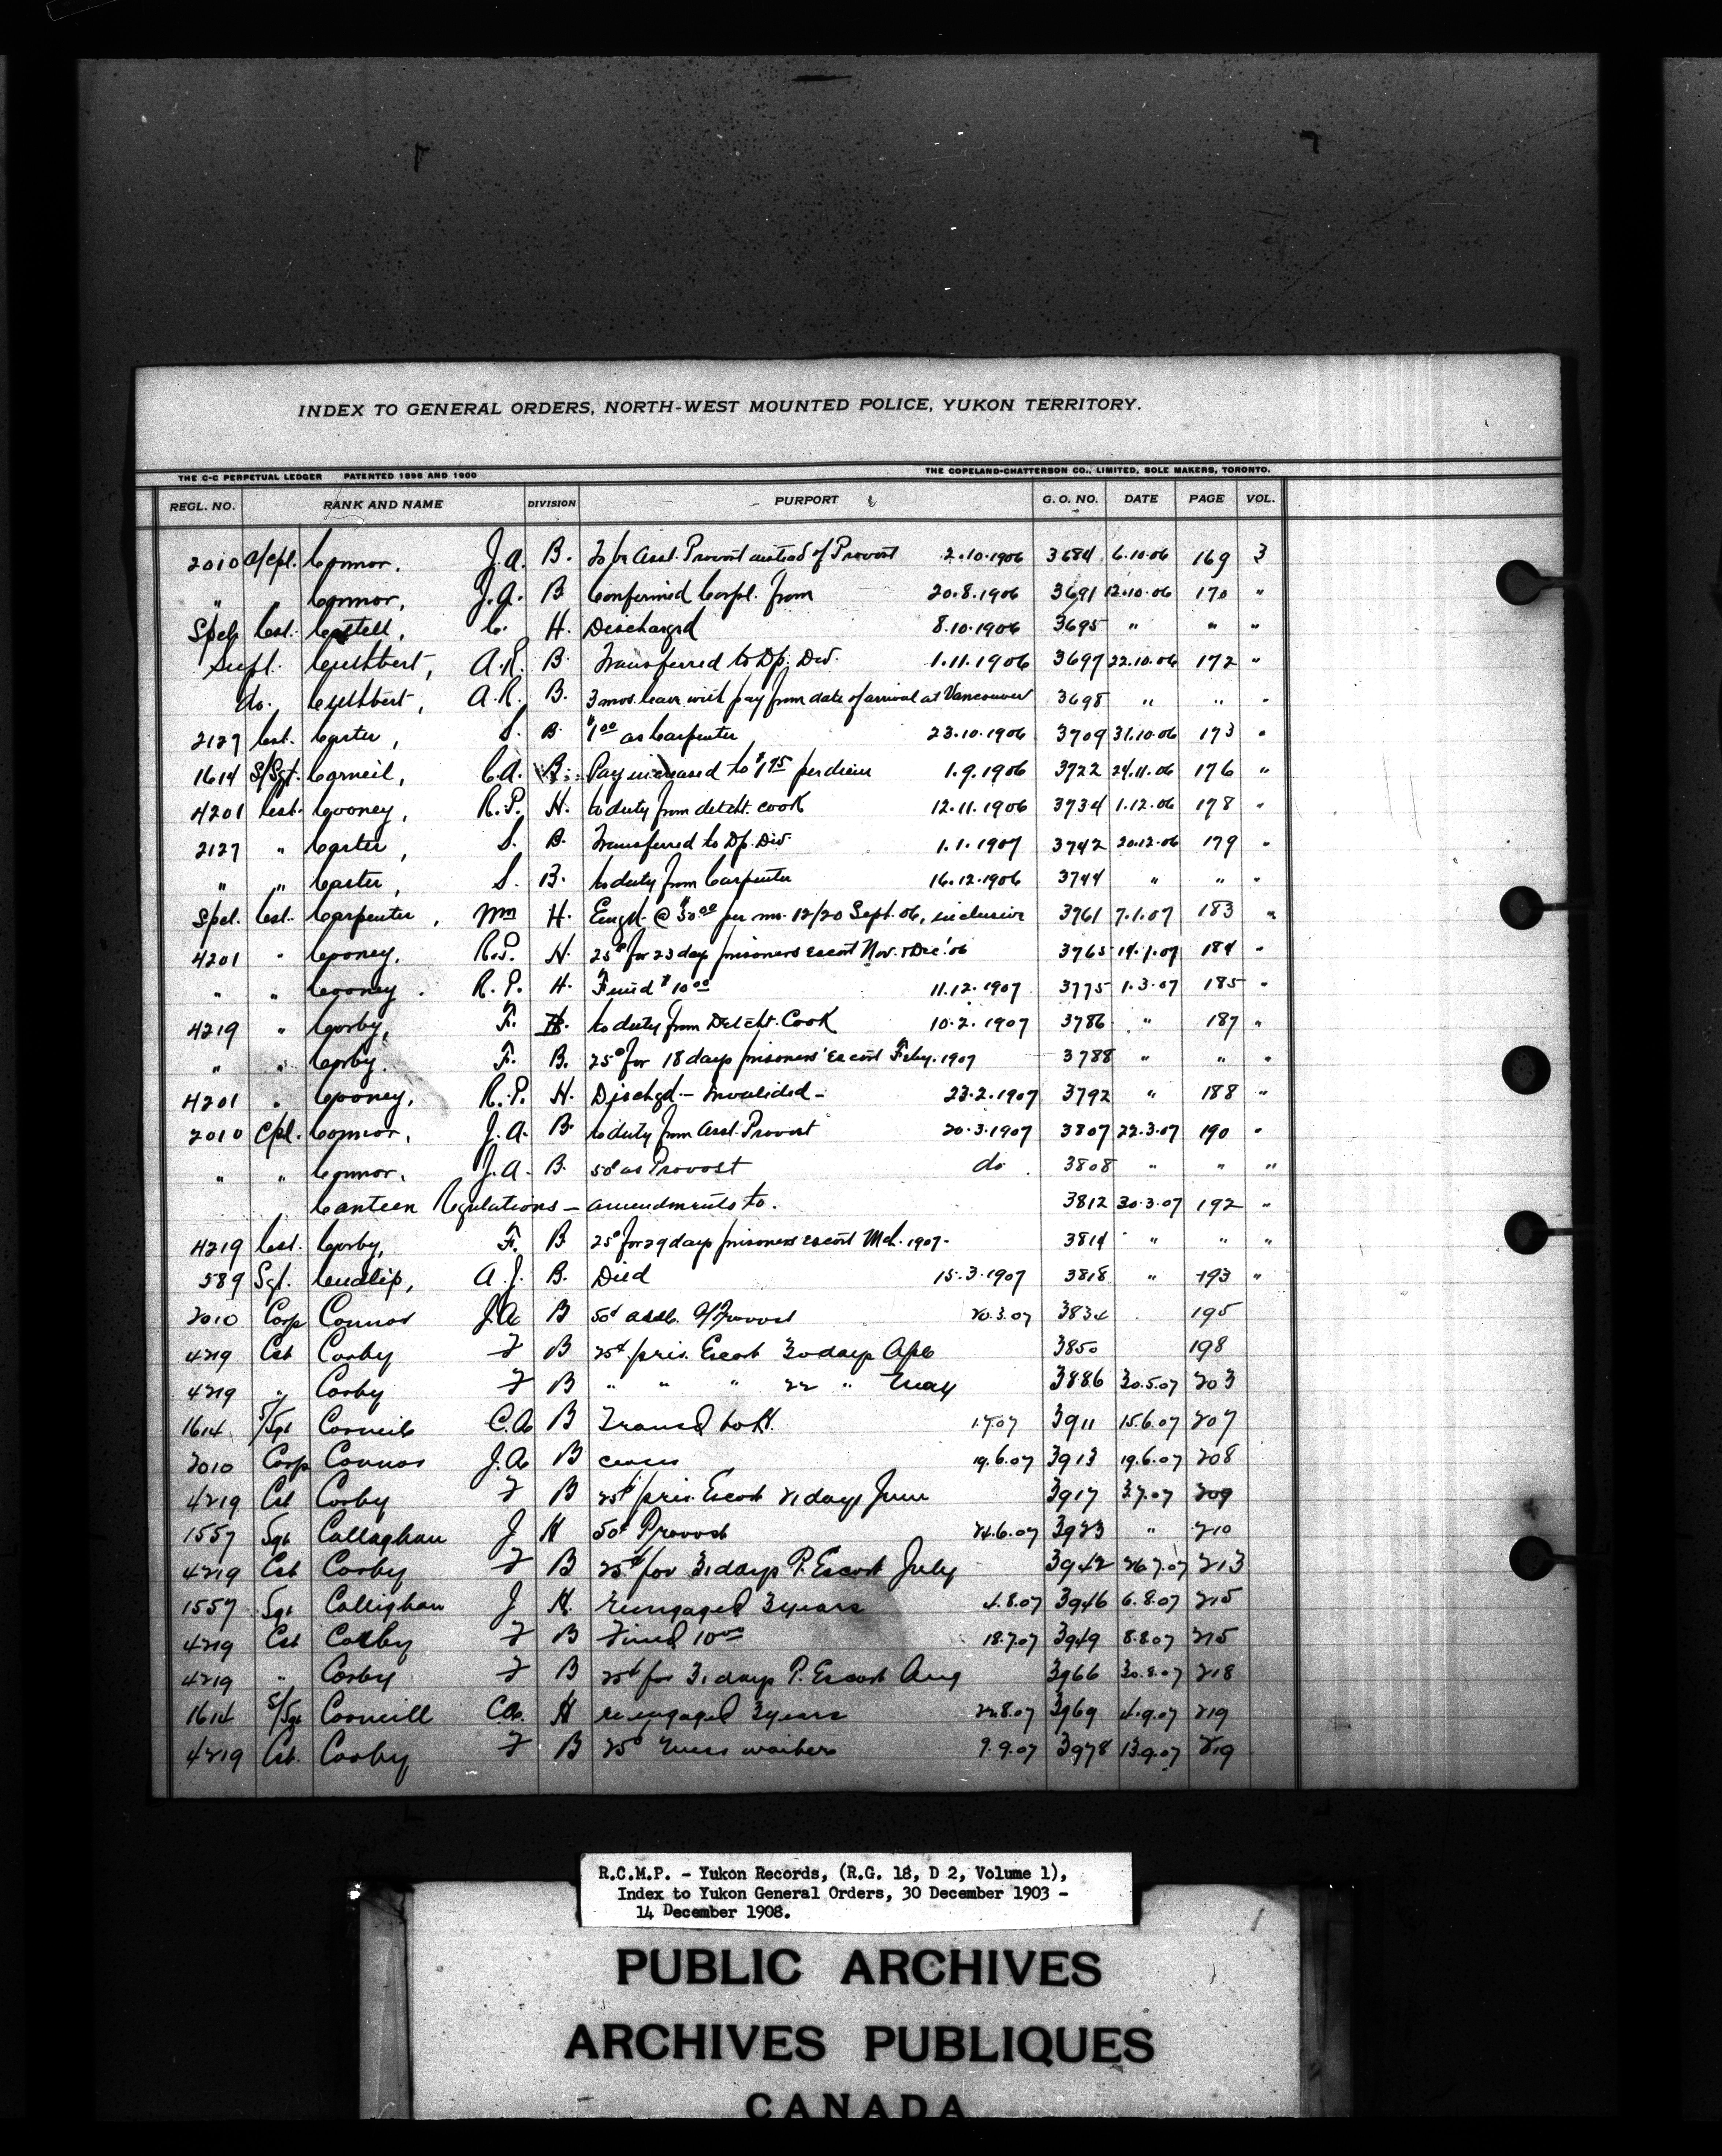 INDEX TO GENERAL ORDERS, NORTH-WEST MOUNTED POLICE, YUKON TERRITORY.
THE C-C PERPETUAL LEDGER PATENTED 1896 AND 1900 THE COPELAND-CHATTERSON CO., LIMITED, SOLE MAKERS, TORONTO.
REGL. NO. RANK AND NAME DIVISION PURPORT G. O. NO. DATE PAGE VOL.
2010 a/Cpl. Connor, J.A. B. To be Asst. Provost instead of Provost 2.10.1906 3684 6.10.06 169 3
" " Connor, J.A. B Confirmed Corpl. from 20.8.1906 3691 12.10.06 170 "
Spcl. Cst. Castell, C. H. Discharged 8.10.1906 3695 " " "
Supt. Cuthbert, A.R. B. Transferred to Dp. Div. 1.11.1906 3697 22.10.06 172 "
do. Cuthbert, A.R. B. 3 mos. leave with pay from date of arrival at Vancouver 3698 " " "
2127 Cst. Carter, S. B. $1.00 as Carpenter 23.10.1906 3709 31.10.06 173 "
1614 S/Sgt. Corneil, C.A. B. Pay increased to $1.75 per diem 1.9.1906 3722 24.11.06 176 "
4201 Cst. Cooney, R.P. H. to duty from detcht. cook 12.11.1906 3734 1.12.06 178 "
2127 " Carter, S. B. Transferred to Dp. Div 1.1.1907 3742 20.12.06 179 "
" " Carter, S. B. to duty from Carpenter 16.12.1906 3744 " " "
Spcl. Cst. Carpenter, Wm H. Engd. @ $30.00 per m. 12/20 Sept. 06, inclusive 3761 7.1.07 183 "
4201 " Cooney, R.P. H. 25¢ for 23 days prisoners escort Nov. & Dec. '06 3765 14.1.07 184 "
" " Cooney. R.P. H. Fined $10.00 11.12.1907 3775 1.3.07 185 "
4219 " Corby, F. B. to duty from Detcht. Cook 10.2.1907 3786 " 187 "
" " Corby. F. B. 25¢ for 18 days prisoners' Escort Feby. 1907 3788 " " "
4201 " Cooney, R.P. H. Dischgd - Invalided - 23.2.1907 3792 " 188 "
2010 Cpl. Connor, J.A. B. to duty from Asst. Provost 20.3.1907 3807 22.3.07 190 "
" " Connor. J.A. B. 50¢ as Provost do. 3808 " " "
Canteen Regulations - amendments to. 3812 30.3.07 192 "
4219 Cst. Corby, F. B 25¢ for 29 days prisoners escort Mch. 1907- 3814 " " "
589 Sgt. Cudlip, A.J. B. Died 15.3.1907 3818 " 193 "
2010 Corp Connor J.A B 50¢ asst. Provost 20.3.07 3834 195
4219 Cst Corby F B 25¢ pris. Escort 30 days Apl 3850 198
4219 " Corby F B " " " 22 " May 3886 30.5.07 203
1614 S/Sgt Corneil C.A B Transd to H. 1.7.07 3911 15.6.07 207
2010 Corp Connor J.A. B ceases 19.6.07 3913 19.6.07 208
4219 Cst Corby F B 25¢ pris. Escort 21 days June 3917 3.7.07 209
1557 Sgt Callaghan J H 50¢ Provost 24.6.07 3923 " 210
4219 Cst Corby F B 25¢ for 31 days P. Escort July 3942 26.7.07 213
1557 Sgt Callighan J H. Reengaged 3 years 4.8.07 3946 6.8.07 215
4219 Cst Corby F B Fined 10.00 18.7.07 3949 8.8.07 215
4219 " Corby F B 25¢ for 31 days P. Escort Aug 3966 30.8.07 218
1614 S/Sgt Corneill C.A. H re engaged 3 years 22.8.07 3969 4.9.07 219
4219 Cst. Corby F B 25¢ Mess waiter 9.9.07 3978 13.9.07 219
R.C.M.P. - Yukon Records, (R.G. 18, D 2, Volume 1),
Index to Yukon General Orders, 30 December 1903 -
14 December 1908.
PUBLIC ARCHIVES
ARCHIVES PUBLIQUES
CANADA